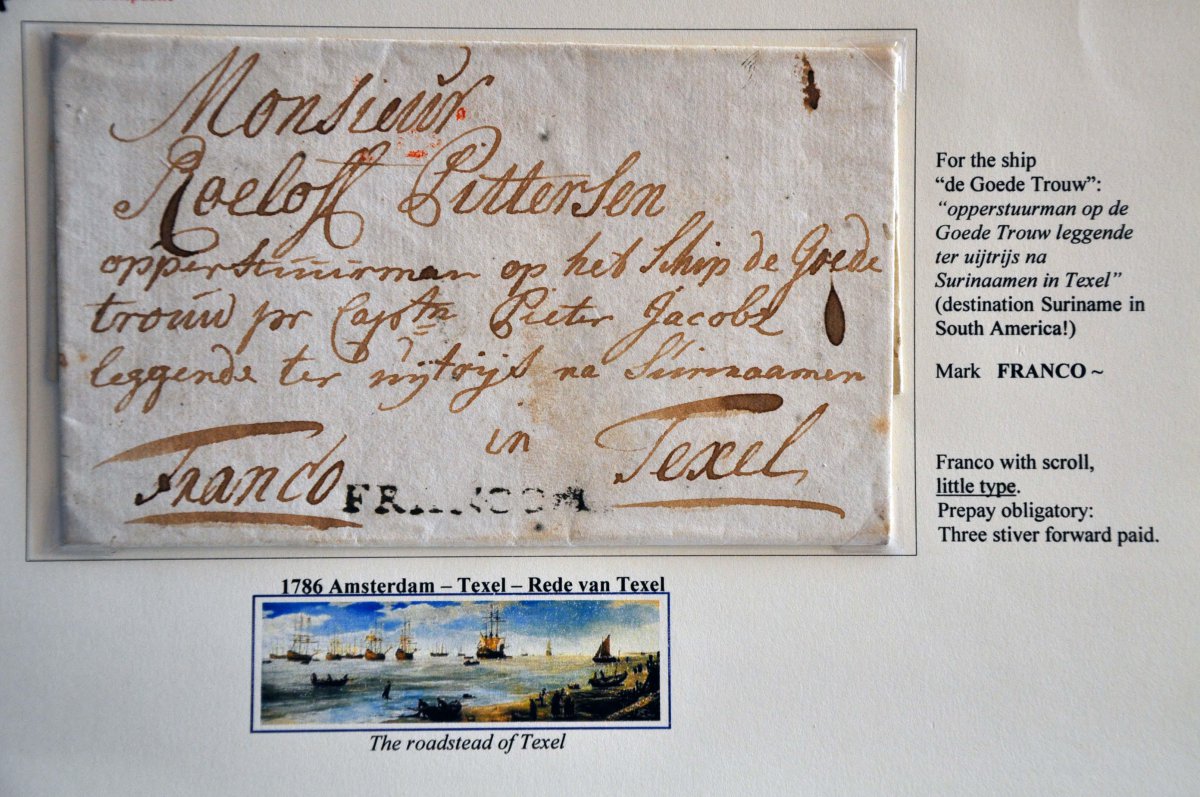 Monsieur
Roeloff Pittersen
opperstuurman op het Schip de Goede
trouw pr Captn Pieter Jacobz
leggende ter uijtrijs na Surinaamen
in
Franco Texel
FRANCO
For the ship
“de Goede Trouw”:
“opperstuurman op de
Goede Trouw leggende
ter uijtrijs na
Surinaamen in Texel”
(destination Suriname in
South America!)
Mark FRANCO ~
Franco with scroll,
little type.
Prepay obligatory:
Three stiver forward paid.
1786 Amsterdam – Texel – Rede van Texel
The roadstead of Texel